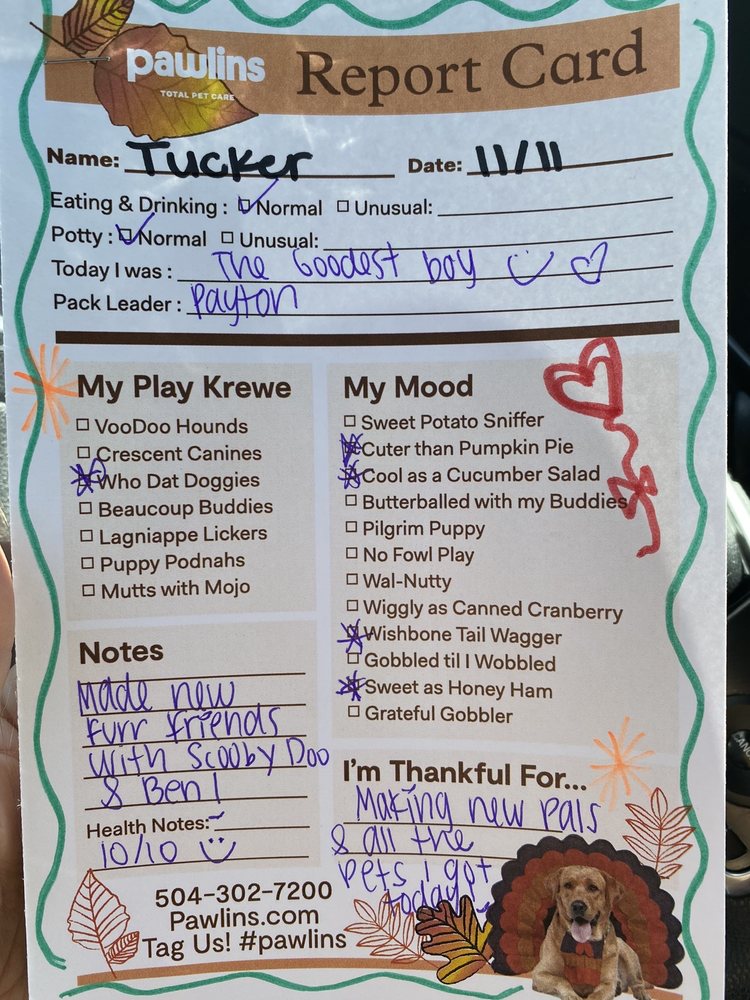 pawlins
TOTAL PET CARE
Report Card
Name: Tucker Date: 11/11
Eating & Drinking : Normal Unusual:
Potty : Normal Unusual:
Today I was : The Goodest boy
Pack Leader : Payton
My Play Krewe
VooDoo Hounds
Crescent Canines
Who Dat Doggies
Beaucoup Buddies
Lagniappe Lickers
Puppy Podnahs
Mutts with Mojo
My Mood
Sweet Potato Sniffer
Cuter than Pumpkin Pie
Cool as a Cucumber Salad
Butterballed with my Buddies
Pilgrim Puppy
No Fowl Play
Wal-Nutty
Wiggly as Canned Cranberry
Wishbone Tail Wagger
Gobbled til I Wobbled
Sweet as Honey Ham
Grateful Gobbler
Notes
Made new
furr friends
with Scooby Doo
& Ben!
Health Notes:
10/10
I'm Thankful For...
Making new pals
& all the
pets i got
today!
504-302-7200
Pawlins.com
Tag Us! #pawlins